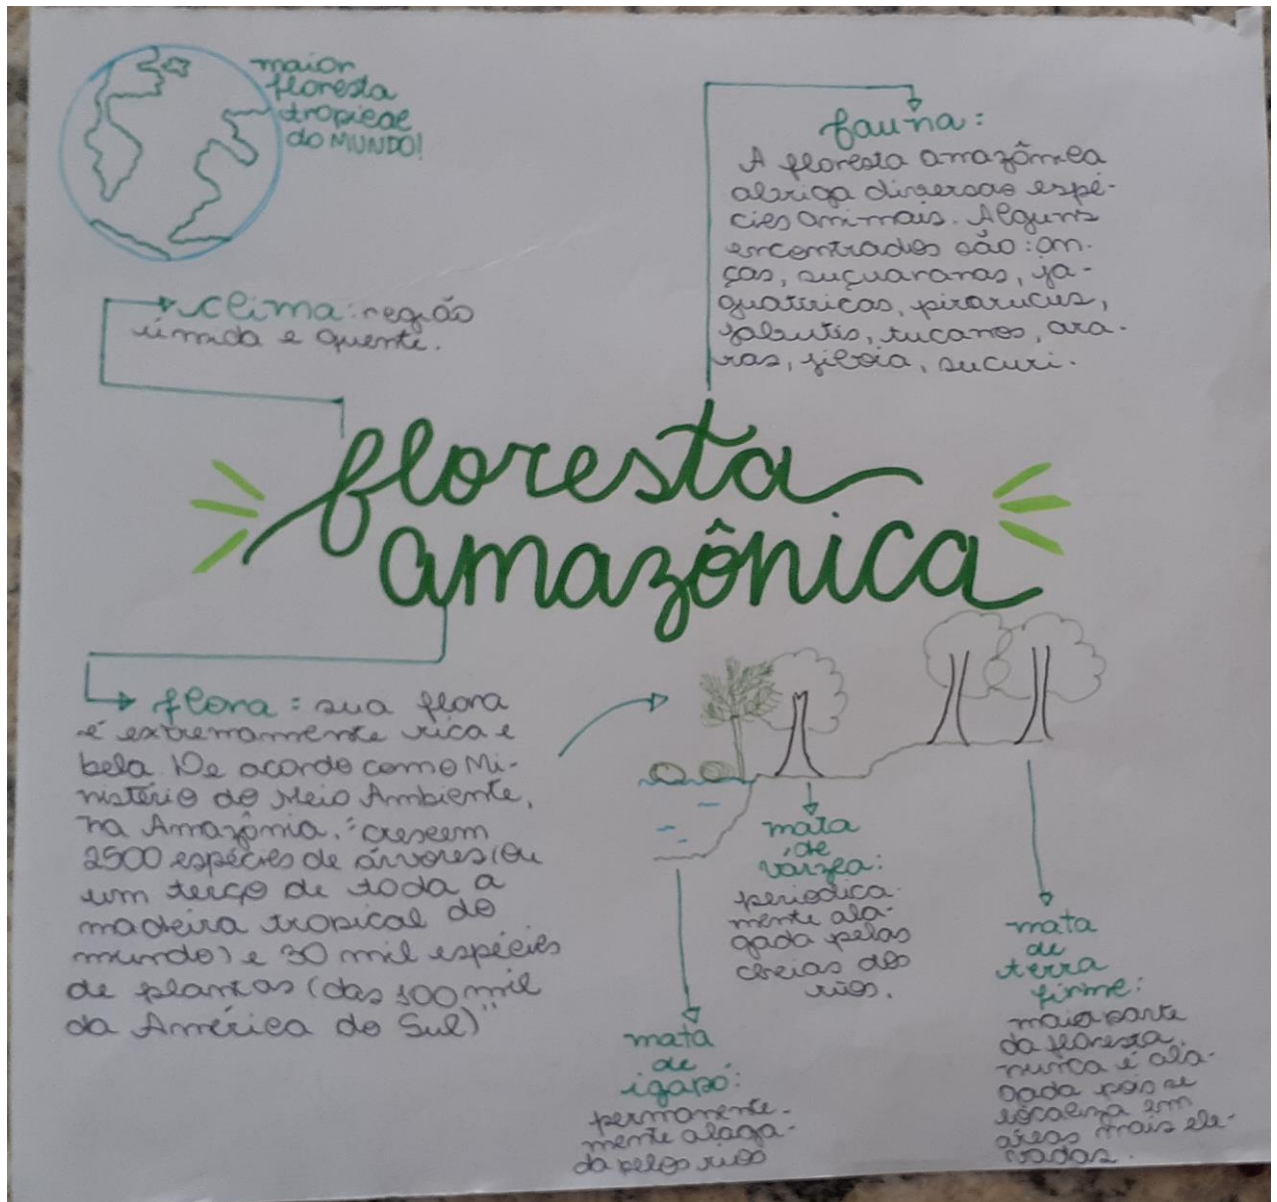 maior
floresta
tropical
do MUNDO!
clima: região
úmida e quente.
fauna:
A floresta amazônica
abriga diversas espé-
cies animais. Alguns
encontrados são: on-
ças, suçuaranas, ja-
guatiricas, pirarucus,
jabutis, tucanos, ara-
ras, jiboia, sucuri.
floresta
amazônica
flora: sua flora
é extremamente rica e
bela. De acordo com o Mi-
nistério do Meio Ambiente,
na Amazônia, "crescem
2500 espécies de árvores (ou
um terço de toda a
madeira tropical do
mundo) e 30 mil espécies
de plantas (das 100 mil
da América do Sul)"
mata
de
igapó:
permanente-
mente alaga-
da pelos rios
mata
de
várzea:
periodica-
mente ala-
gada pelas
cheias dos
rios.
mata
de
terra
firme:
maior parte
da floresta.
nunca é ala-
gada pois se
localiza em
áreas mais ele-
vadas.